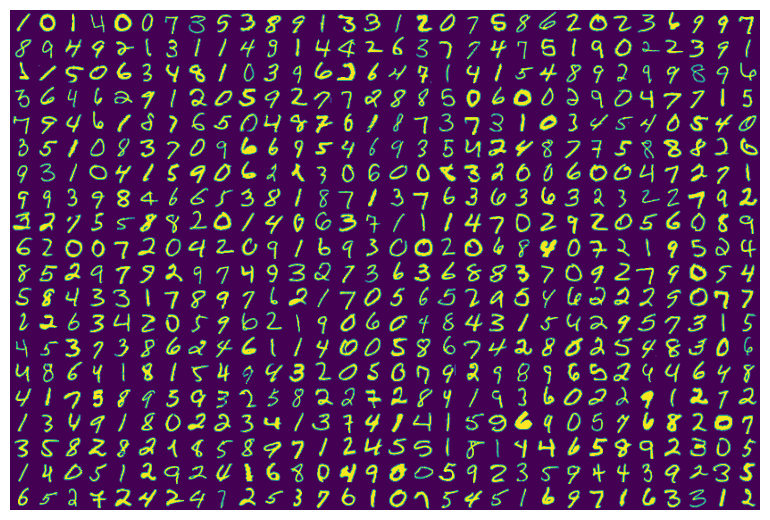 1 0 1 4 0 0 7 3 5 3 8 9 1 3 3 1 2 0 7 5 8 6 2 0 2 3 6 9 9 7
8 9 4 9 2 1 3 1 1 4 9 1 4 4 2 6 3 7 7 4 7 5 1 9 0 2 2 3 9 1
1 1 5 0 6 3 4 8 1 0 3 9 6 2 6 4 7 1 4 1 5 4 8 9 2 9 9 8 9 6
3 6 4 6 2 9 1 2 0 5 9 2 7 7 2 8 8 5 0 6 0 0 2 9 0 4 7 7 1 5
7 9 4 6 1 8 7 6 5 0 4 8 7 6 1 8 7 3 7 3 1 0 3 4 5 4 0 5 4 0
3 5 1 0 8 3 7 0 9 6 6 9 5 4 6 9 3 5 4 2 4 8 7 7 5 8 8 8 2 0
9 3 1 0 4 1 5 9 0 6 2 2 3 0 6 0 0 8 3 2 0 0 6 0 0 4 7 2 7 1
9 9 3 9 8 4 6 6 5 3 8 1 8 7 1 3 7 6 3 6 3 6 3 2 3 2 2 7 9 2
3 2 7 5 5 8 8 2 0 1 4 0 6 3 7 1 1 1 4 7 0 2 9 2 0 5 6 0 8 9
6 2 0 0 7 2 0 4 2 0 9 1 6 9 3 0 0 2 0 6 8 4 0 7 2 1 9 5 2 4
8 5 2 9 7 9 2 9 7 4 9 3 2 7 3 6 3 6 8 8 3 7 0 9 2 7 9 0 5 4
5 8 4 3 3 1 7 8 9 7 6 2 1 7 0 5 6 5 2 9 5 4 6 2 2 2 5 0 7 7
2 2 6 3 4 2 0 5 9 6 2 1 9 0 6 0 4 8 4 3 1 5 4 2 9 5 7 3 1 5
4 5 3 7 3 8 6 2 4 6 1 1 4 0 0 5 8 6 7 4 2 8 0 2 5 4 8 3 0 6
4 8 6 4 1 8 1 5 4 9 4 3 2 0 5 0 7 9 2 9 8 9 6 5 2 4 4 6 4 8
4 1 7 5 8 9 5 9 3 2 5 8 2 2 7 2 8 4 1 9 3 6 0 2 2 9 1 2 7 2
1 3 4 9 1 8 0 2 2 3 4 1 3 7 4 1 4 1 5 9 6 9 0 5 7 6 8 2 0 7
3 5 8 2 8 2 1 8 5 8 9 7 1 2 4 5 5 1 8 1 4 4 6 5 8 9 2 3 0 5
1 4 0 5 1 2 9 2 4 1 6 8 0 4 9 0 0 5 9 2 3 5 9 4 4 3 9 2 3 5
6 5 2 7 2 4 2 4 7 2 5 3 7 6 1 0 7 5 4 5 1 6 9 7 1 6 3 3 1 2